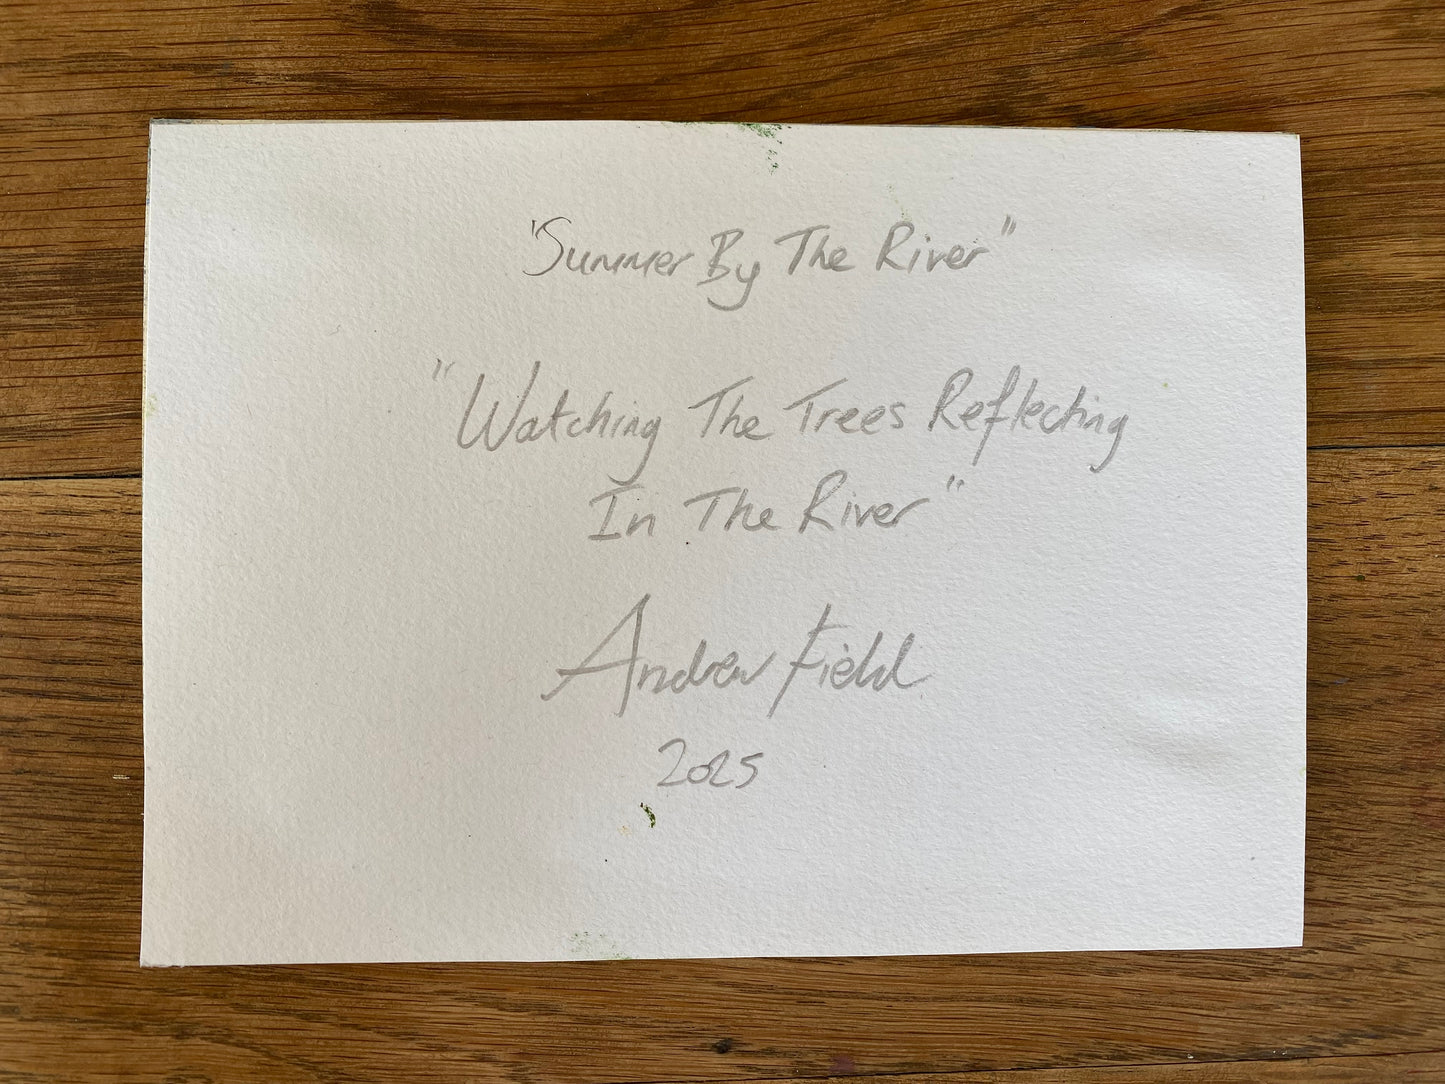 "Summer By The River"
"Watching The Trees Reflecting
In The River"
Andrew Field
2025